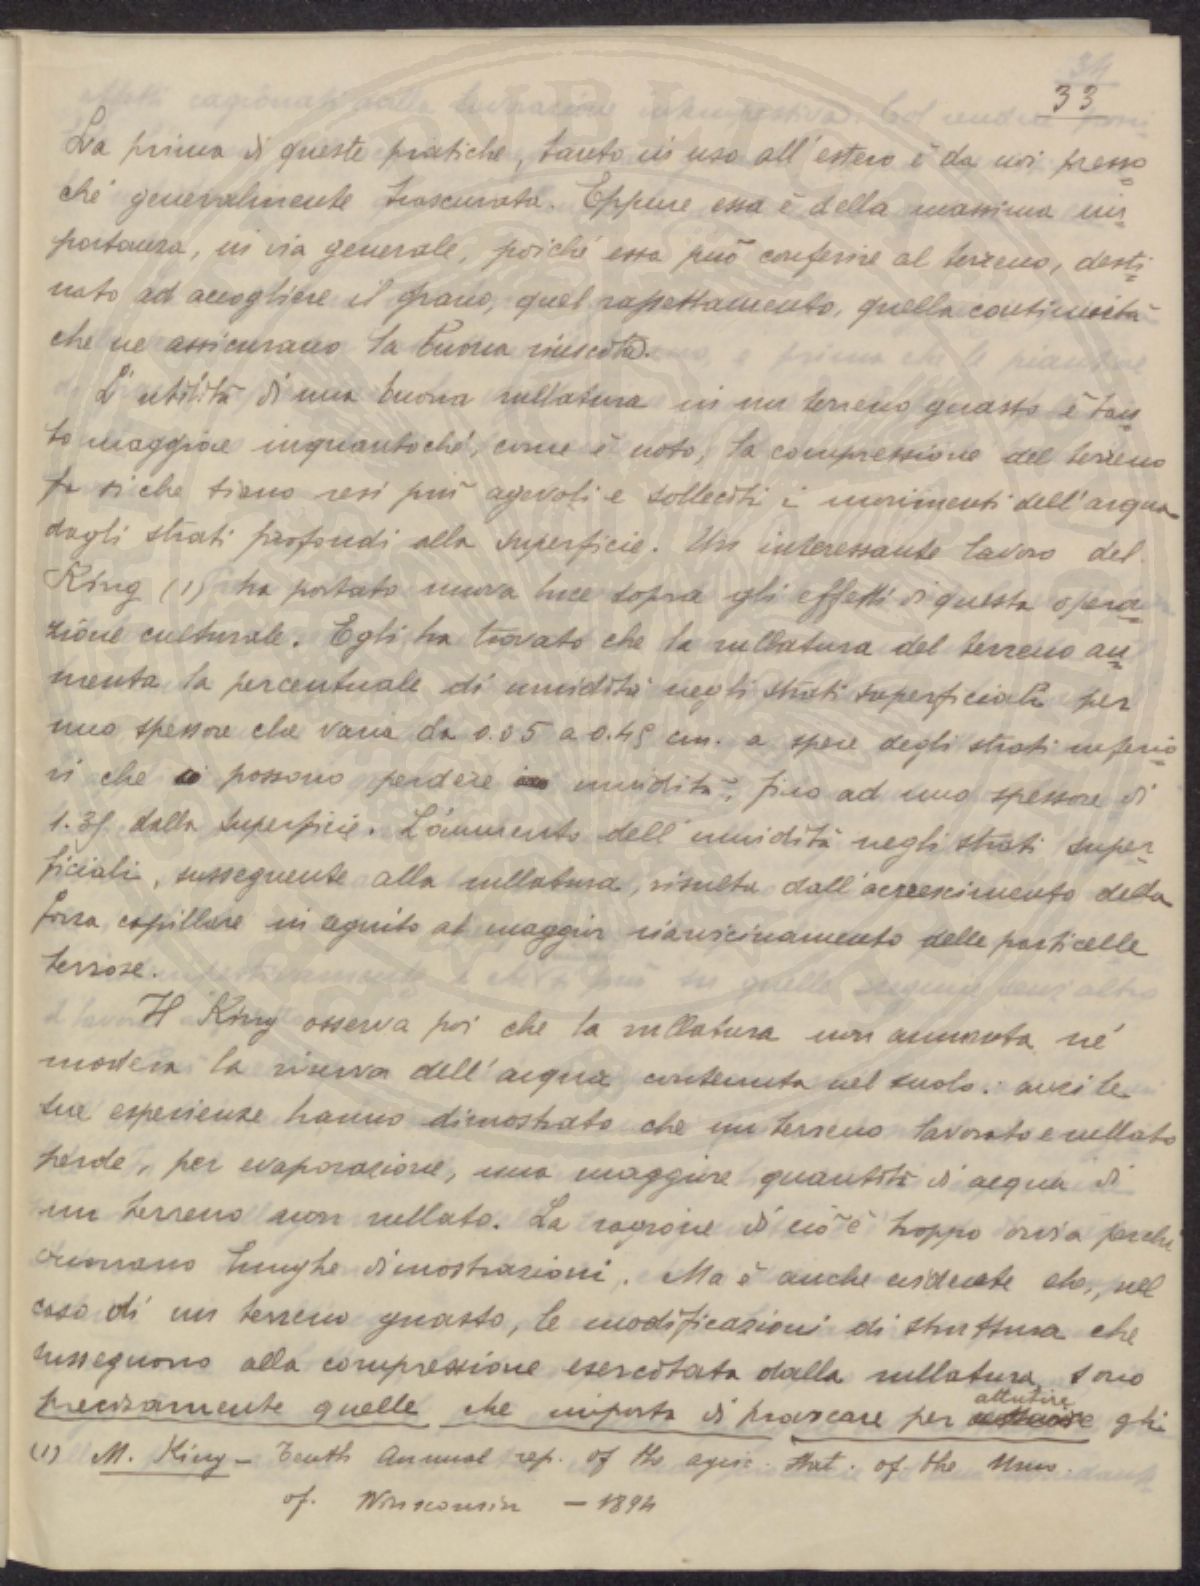 34
33
La prima di queste pratiche, tanto in uso all'estero è da noi presso
ché generalmente trascurata. Eppure essa è della massima im
portanza, in via generale, poiché essa può conferire al terreno, desti
nato ad accogliere il grano, quel rassettamento, quella continuità
che ne assicurano la buona riuscita.
L'utilità di una buona rullatura in un terreno guasto è tan
to maggiore inquantoché, come è noto, la compressione del terreno
fa si che siano resi più agevoli e solleciti i movimenti dell'acqua
dagli strati profondi alla superficie. Un interessante lavoro del
King (1) ha portato nuova luce sopra gli effetti di questa opera
zione culturale. Egli ha trovato che la rullatura del terreno au
menta la percentuale di umidità negli strati superficiali per
uno spessore che varia da 0.05 a 0.45 cm. a spese degli strati inferio
ri che possono perdere umidità, fino ad uno spessore di
1.35 dalla superficie. L'aumento dell'umidità negli strati super
ficiali, susseguente alla rullatura, risulta dall'accrescimento della
forza capillare in seguito al maggior riavvicinamento delle particelle
terrose.
Il King osserva poi che la rullatura non aumenta né
modera la riserva dell'acqua contenuta nel suolo: anzi le
sue esperienze hanno dimostrato che un terreno lavorato e rullato
perde, per evaporazione, una maggiore quantità di acqua di
un terreno non rullato. La ragione di ciò è troppo ovvia perché
occorrano lunghe dimostrazioni. Ma è anche evidente che, nel
caso di un terreno guasto, le modificazioni di struttura che
susseguono alla compressione esercitata dalla rullatura sono
attutire
precisamente quelle che importa di provocare per gli
(1) M. King - Tenth Annual rep. of the agric. stat. of the Univ.
of. Wisconsin - 1894